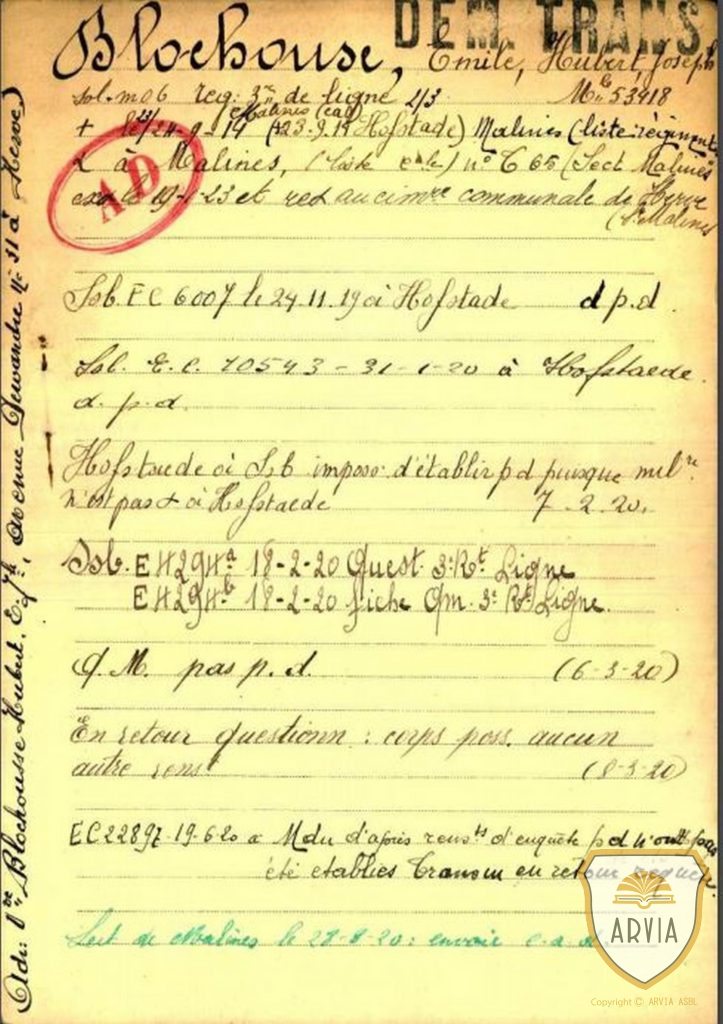 DEM. TRANS
Blochouse, Emile, Hubert, Joseph
Sol. m 06 reg: 3me de ligne 2/3 Mle 53418
Malines (cal)
+ le 23/24-9-14 (+23.9.14 Hofstade) Malines (liste régiment
à Malines, (liste ) n° C 65 (Sect Malines
AD
le 19-1-23 et au cimre communale de Herve
(St. Malines
Ssb. EC 6007 le 24.11.19 à Hofstade d p.d
Ssb. E.C. 10543 - 31-1-20 à Hofstaede.
d. p. d.
Hofstaede à Ssb imposs. d'établir p d puisque milre
n'est pas + à Hofstaede 7.2.20.
Ssb. E 4294a 18-2-20 Quest. 3e Rt Ligne
E 4294b 18-2-20 fiche Qm. 3e Rt Ligne.
Q. M. pas p. d. (6-3-20)
En retour questionn : corps poss. aucun
autre renst (8-3-20)
EC 22897-19-6-20 a Mdu d'après rensts d'enquête p d n'ont pas
été etablies en retour
Sect de Malines le 28-8-20: envoie e.a.d.
Adr: Vve Blochousse Hubert. Eqte, Avenue Dewandre No 31 à Herve)
ARVIA
Copyright © ARVIA ASBL